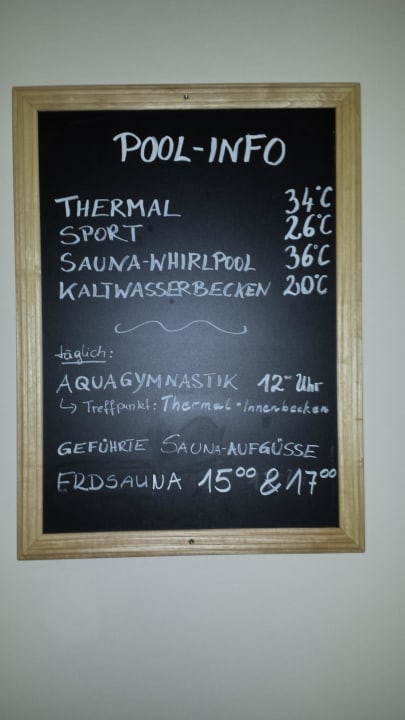 POOL-INFO
THERMAL 34°C
SPORT 26°C
SAUNA-WHIRLPOOL 36°C
KALTWASSERBECKEN 20°C
täglich:
AQUAGYMNASTIK 12°° Uhr
↳ Treffpunkt: Thermal-Innenbecken
GEFÜHRTE SAUNA-AUFGÜSSE
ERDSAUNA 15⁰⁰ & 17⁰⁰